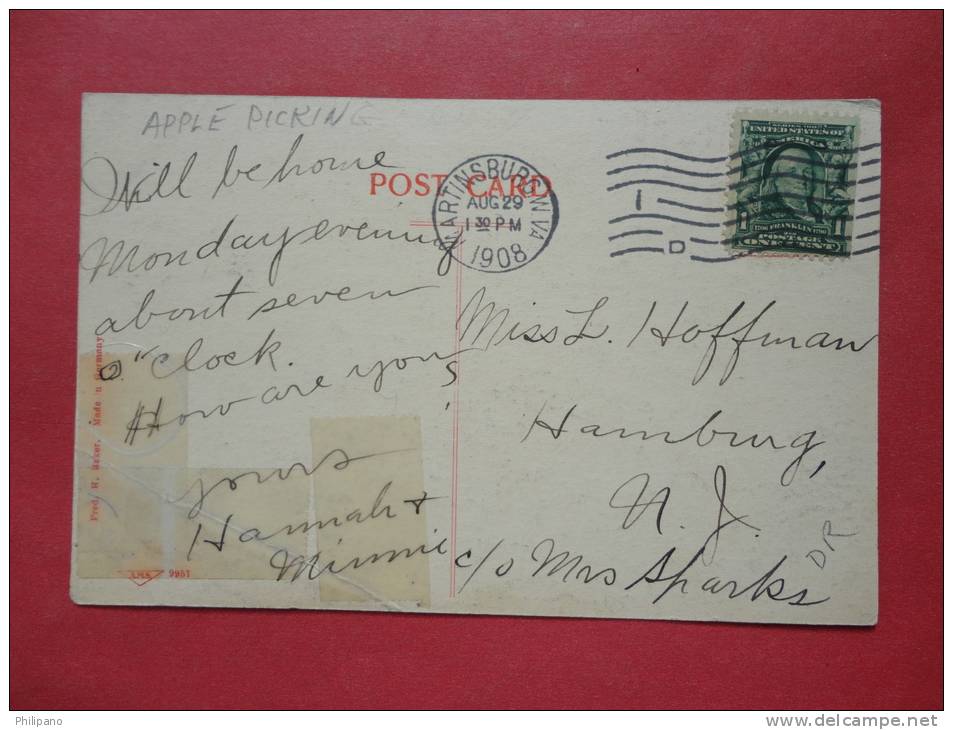 APPLE PICKING
Will be home
Monday evening
about seven
o"clock.
How are you's
yours
Hannah &
Minnie
POST CARD
MARTINSBURG W.VA
AUG 29
1 30 PM
1908
1
D
SERIES 1902
UNITED STATES OF
AMERICA
1706 FRANKLIN 1790
POSTAGE
ONE CENT
Miss L. Hoffman
Hamburg,
N. J.
c/o Mrs Sparks
DR
Fred. H. Baker, Made in Germany
9951
Philipano
www.delcampe.net